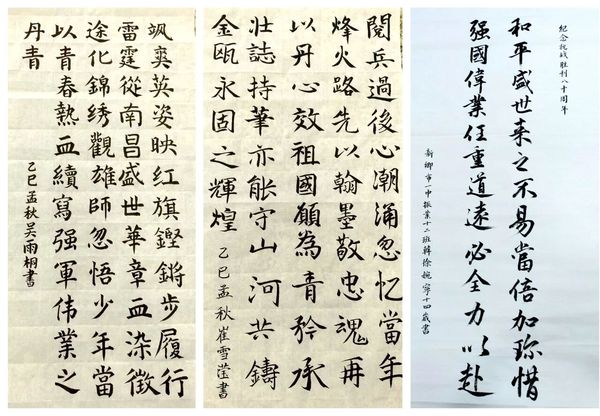 颯爽英姿映红旗鏗鏘步履行
雷霆從南昌盛世華章血染徵
途化錦绣觀雄師忽悟少年當
以青春熱血續寫强軍伟業之
丹青
乙巳孟秋吴雨桐書
閲兵過後心潮涌忽忆當年
烽火路先以翰墨敬忠魂再
以丹心效祖國願為青矜承
壮誌持華亦能守山河共鑄
金瓯永固之輝煌
乙巳孟秋崔雪莹書
紀念抗战胜利八十周年
和平盛世来之不易當倍加珍惜
强國偉業任重道遠必全力以赴
新鄉市一中振業十二班韓徐婉寧十四歲書